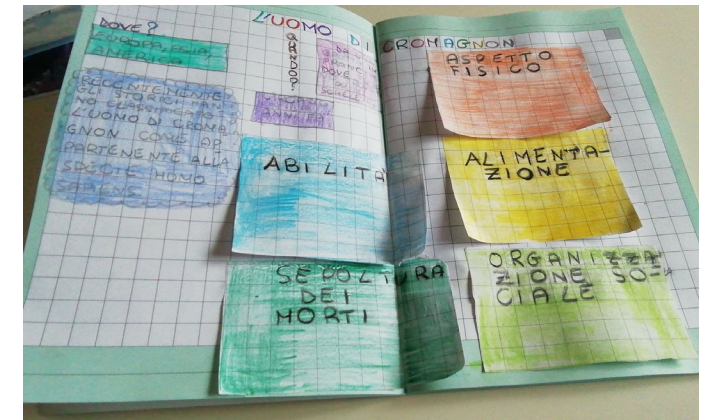 L'UOMO DI CROMAGNON
DOVE?
EUROPA, ASIA,
AMERICA
RECENTEMENTE
GLI STORICI HAN
NO CLASSIFICATO
L'UOMO DI CROMA
GNON COME AP
PARTENENTE ALLA
SPECIE HOMO
SAPIENS
QUANDO?
DA
DOVE
ABILITA'
SEPOLTURA
DEI
MORTI
ASPETTO
FISICO
ALIMENTA-
ZIONE
ORGANIZZA
ZIONE SO=
CIALE